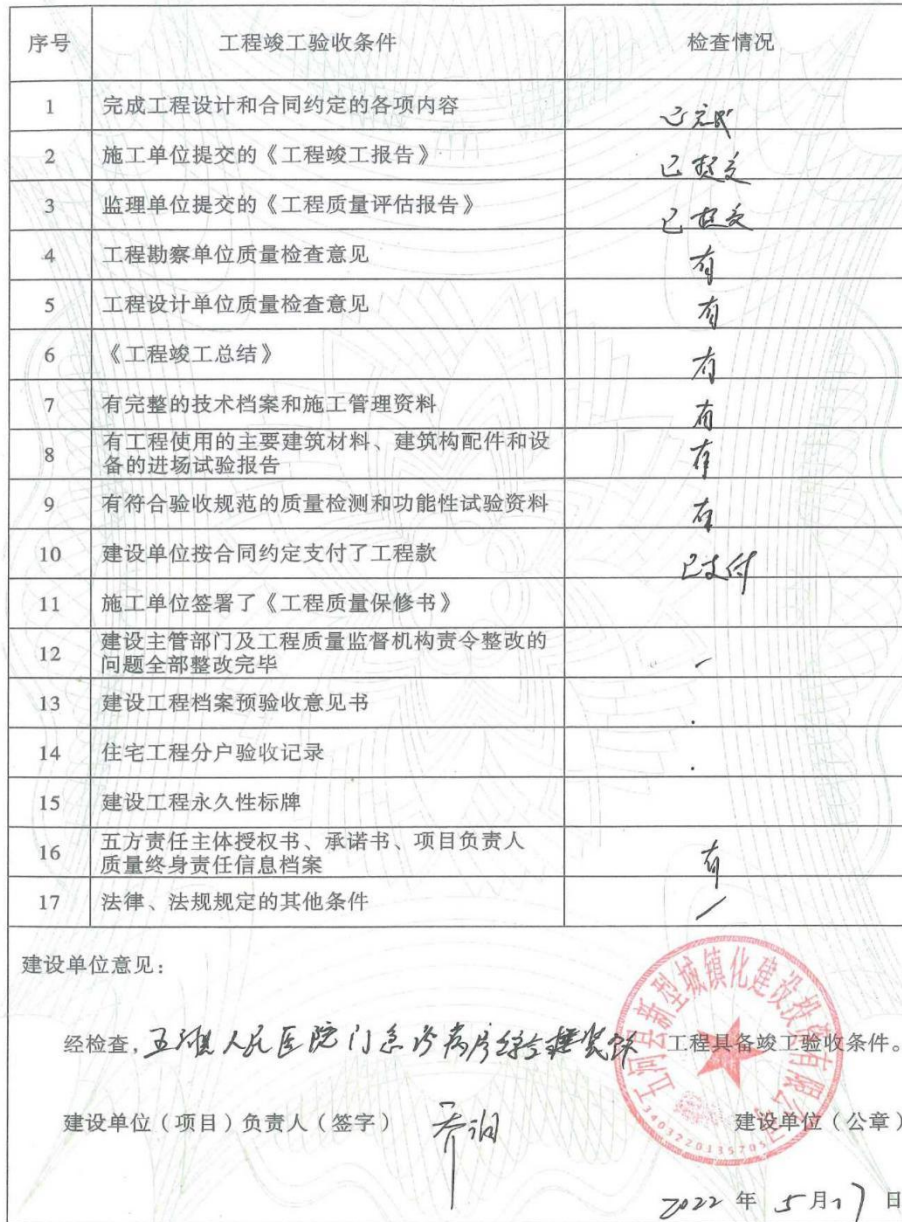 序号 工程竣工验收条件 检查情况
1 完成工程设计和合同约定的各项内容 已完成
2 施工单位提交的《工程竣工报告》 已提交
3 监理单位提交的《工程质量评估报告》 已提交
4 工程勘察单位质量检查意见 有
5 工程设计单位质量检查意见 有
6 《工程竣工总结》 有
7 有完整的技术档案和施工管理资料 有
8 有工程使用的主要建筑材料、建筑构配件和设
备的进场试验报告 有
9 有符合验收规范的质量检测和功能性试验资料 有
10 建设单位按合同约定支付了工程款 已支付
11 施工单位签署了《工程质量保修书》
12 建设主管部门及工程质量监督机构责令整改的
问题全部整改完毕 /
13 建设工程档案预验收意见书 .
14 住宅工程分户验收记录 .
15 建设工程永久性标牌
16 五方责任主体授权书、承诺书、项目负责人
质量终身责任信息档案 有
17 法律、法规规定的其他条件 /
建设单位意见：
五河县新型城镇化建设投资有限公司
经检查，五河县人民医院门急诊病房综合楼装饰 工程具备竣工验收条件。
建设单位（项目）负责人（签字） 建设单位（公章）
2022 年 5 月 17 日